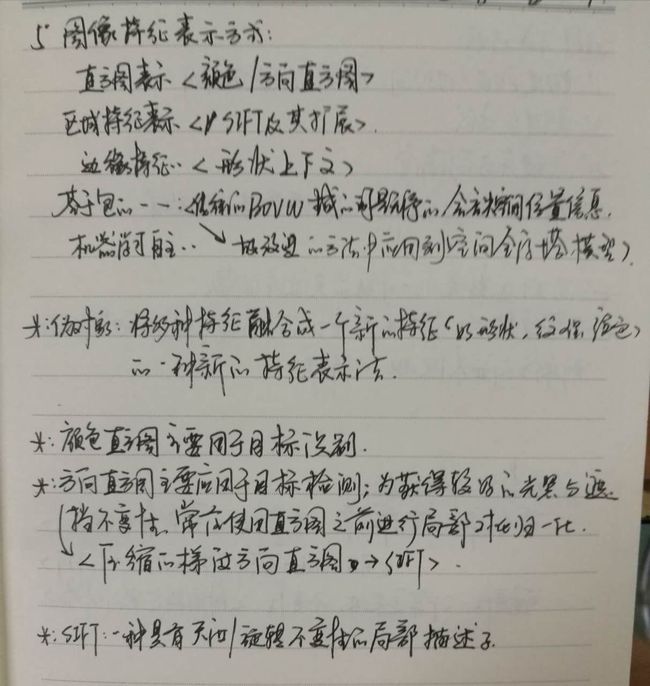 5 图像特征表示方式:
直方图表示 <颜色/方向直方图>
区域特征表示 <SIFT及其扩展>
边缘特征.. <形状上下文>
基于包的---:<传统的BOVW 会丢失空间位置信息.
机器学习自主.. 的方法中应用到空间金字塔模型>.
*: 将多种特征融合成一个新的特征(如形状,纹理,颜色)
的一种新的特征表示法.
*: 颜色直方图主要用于目标识别.
*: 方向直方图主要应用于目标检测; 为获得较好的光照与遮
挡不变性, 常在使用直方图之前进行局部对比归一化.
<压缩的梯度方向直方图→SIFT>.
*: SIFT: 一种具有尺度/旋转不变性的局部描述子.